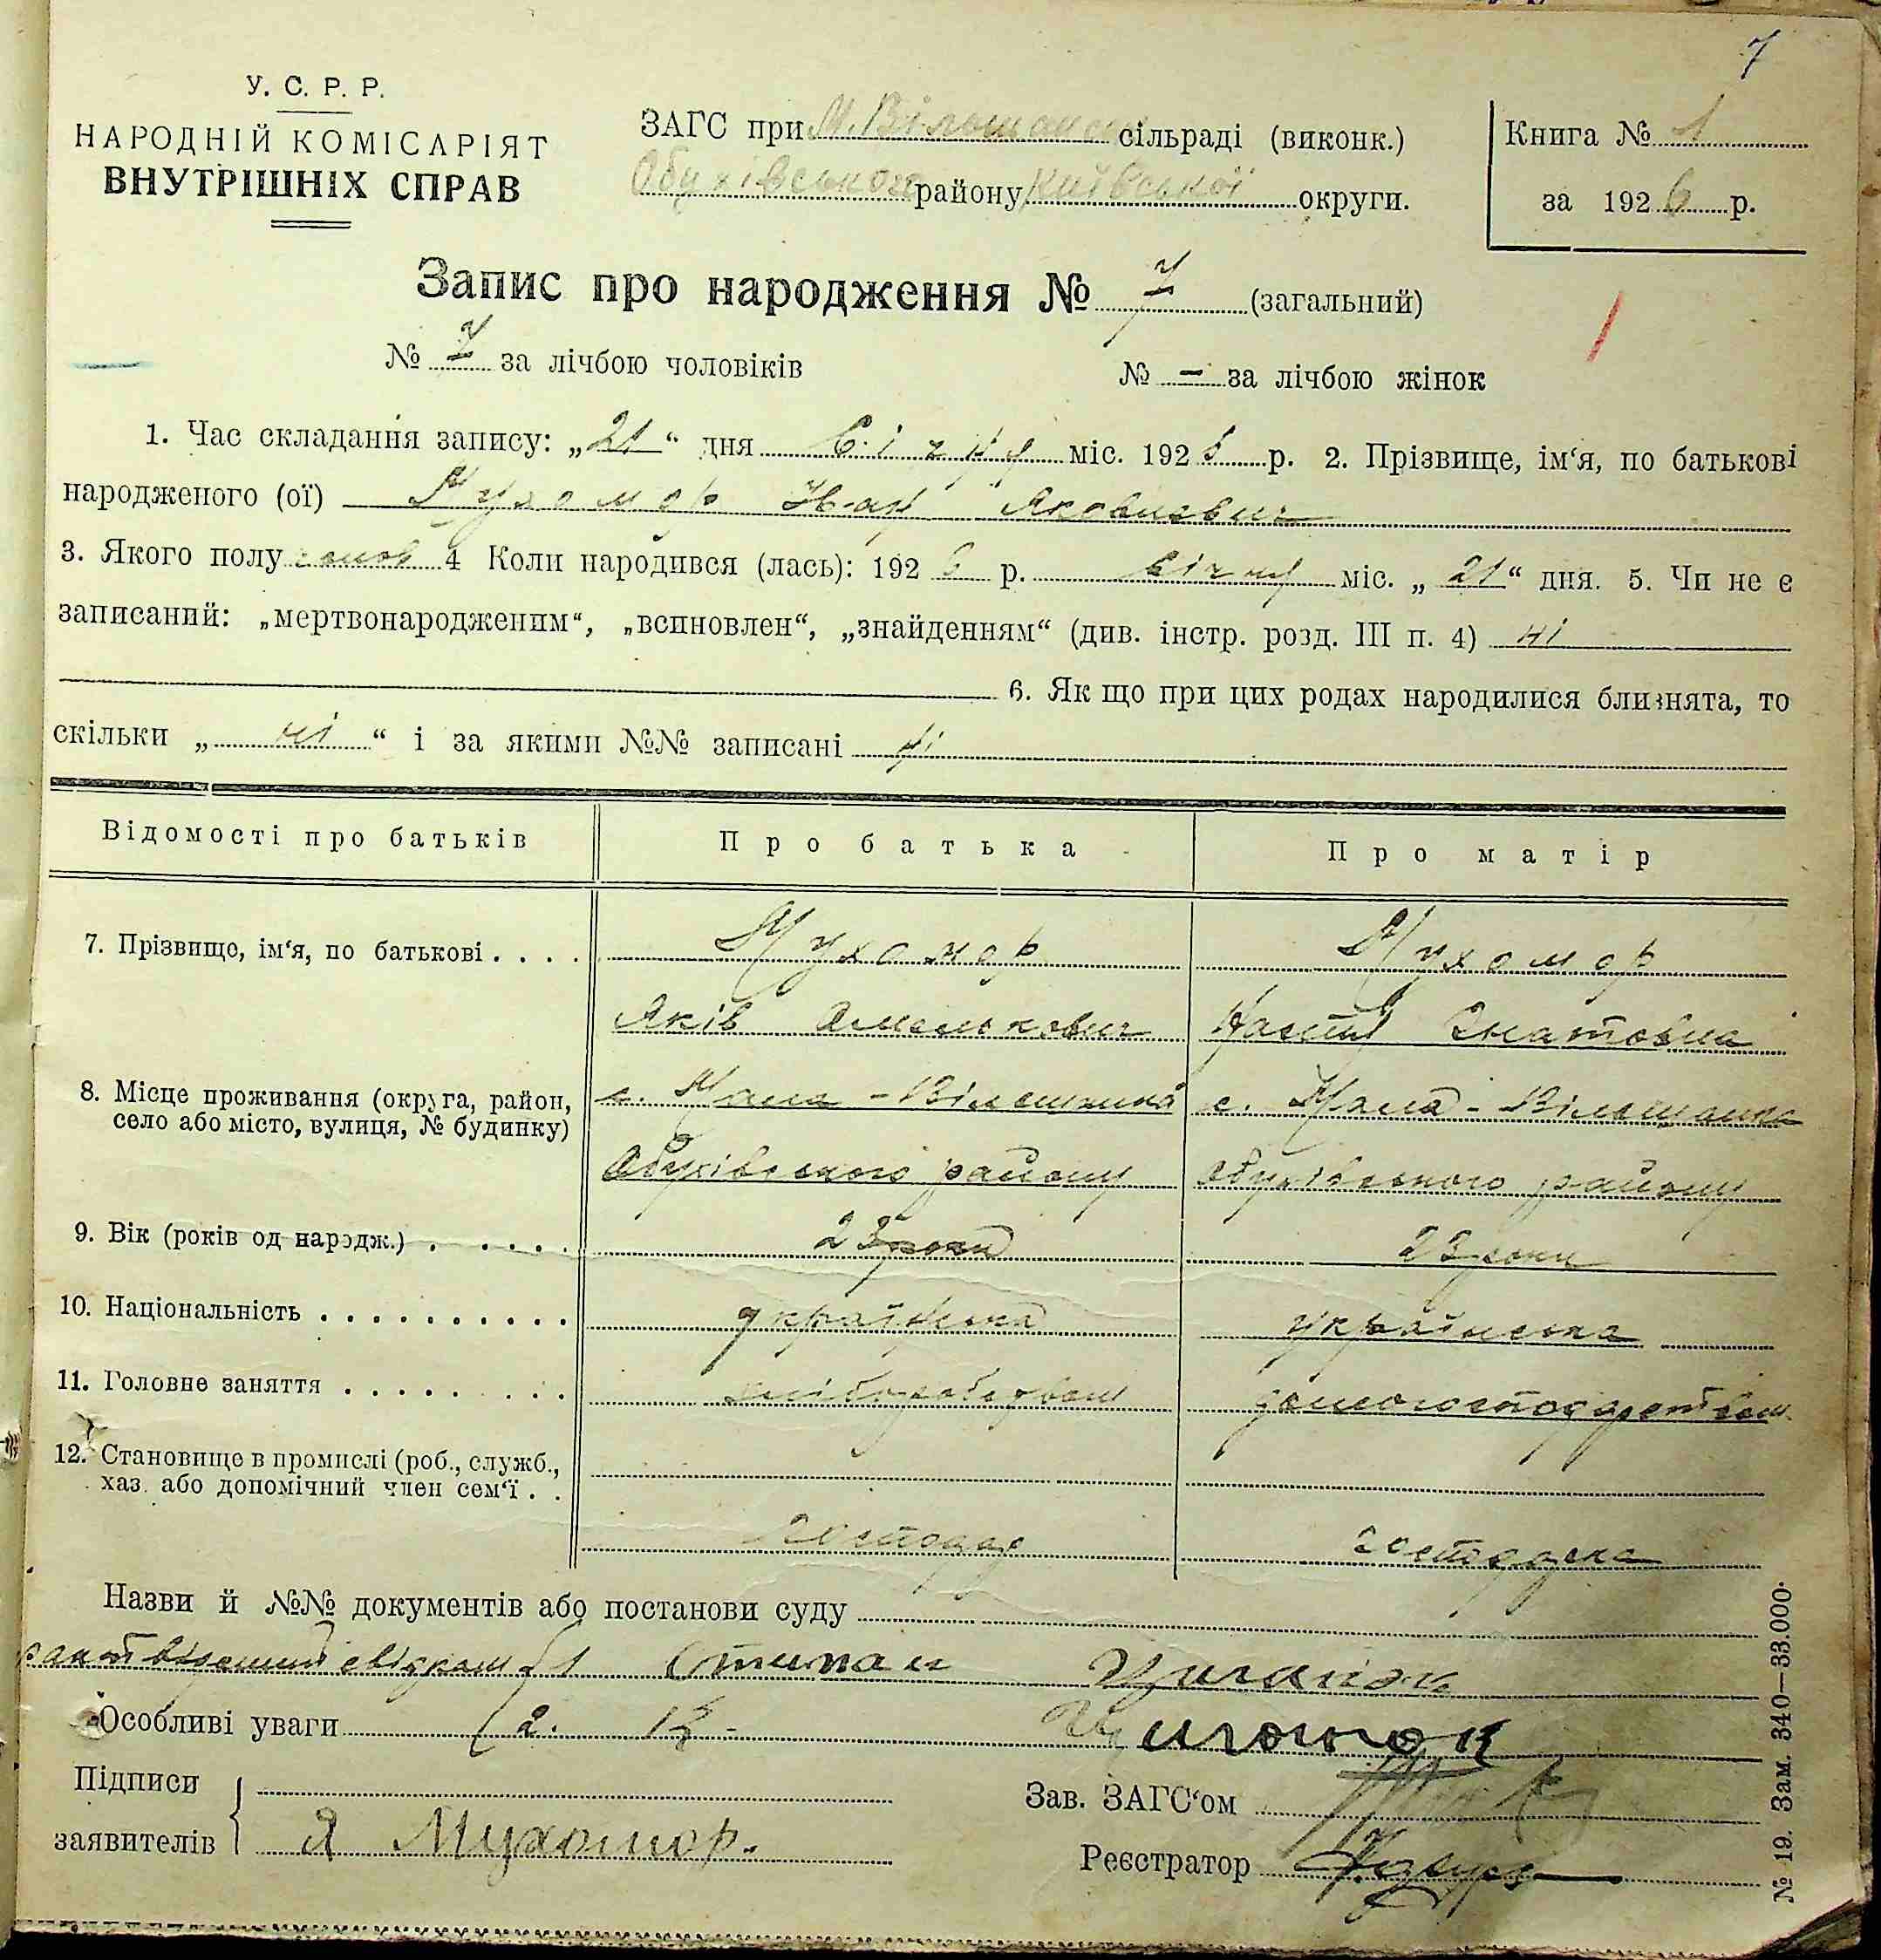 7
У. С. Р. Р.
НАРОДНІЙ КОМІСАРІЯТ
ВНУТРІШНІХ СПРАВ
ЗАГС при М. Вільшанськ сільраді (виконк.)
Обухівського району Київської округи.
Книга № 1
за 1926 р.
Запис про народження № 7 (загальний)
№ 7 за лічбою чоловіків № — за лічбою жінок
1. Час складання запису: „21“ дня Січня міс. 1926 р. 2. Прізвище, ім‘я, по батькові
народженого (ої) Мухомор Іван Яковлевич
3. Якого полу чолов 4 Коли народився (лась): 1926 р. січня міс. „21“ дня. 5. Чи не є
записаний: „мертвонародженим“, „всиновлен“, „знайденням“ (див. інстр. розд. III п. 4) ні
6. Як що при цих родах народилися близнята, то
скільки „ ні “ і за якими №№ записані ні
Відомості про батьків Про батька Про матір
7. Прізвище, ім‘я, по батькові . . . . Мухомор Мухомор
Яків Омелькович Настя Гнатовна
8. Місце проживання (округа, район, с. Мала-Вільшанка с. Мала-Вільшанка
село або місто, вулиця, № будинку)
Обухівського району Обухівського району
9. Вік (років од народж.) . . . . . 23 роки 23 роки
10. Національність . . . . . . . . . . . українська українська
11. Головне заняття . . . . . . . . хліборобством домогосподарством
12. Становище в промислі (роб., служб.,
хаз. або допомічний член сем‘ї . .
господар господарка
Назви й №№ документів або постанови суду
1 Степан Циганок
Особливі уваги 2. Циганок
Підписи
заявителів Я Мухомор.
Зав. ЗАГС‘ом
Реєстратор
№ 19. Зам. 340—33.000.